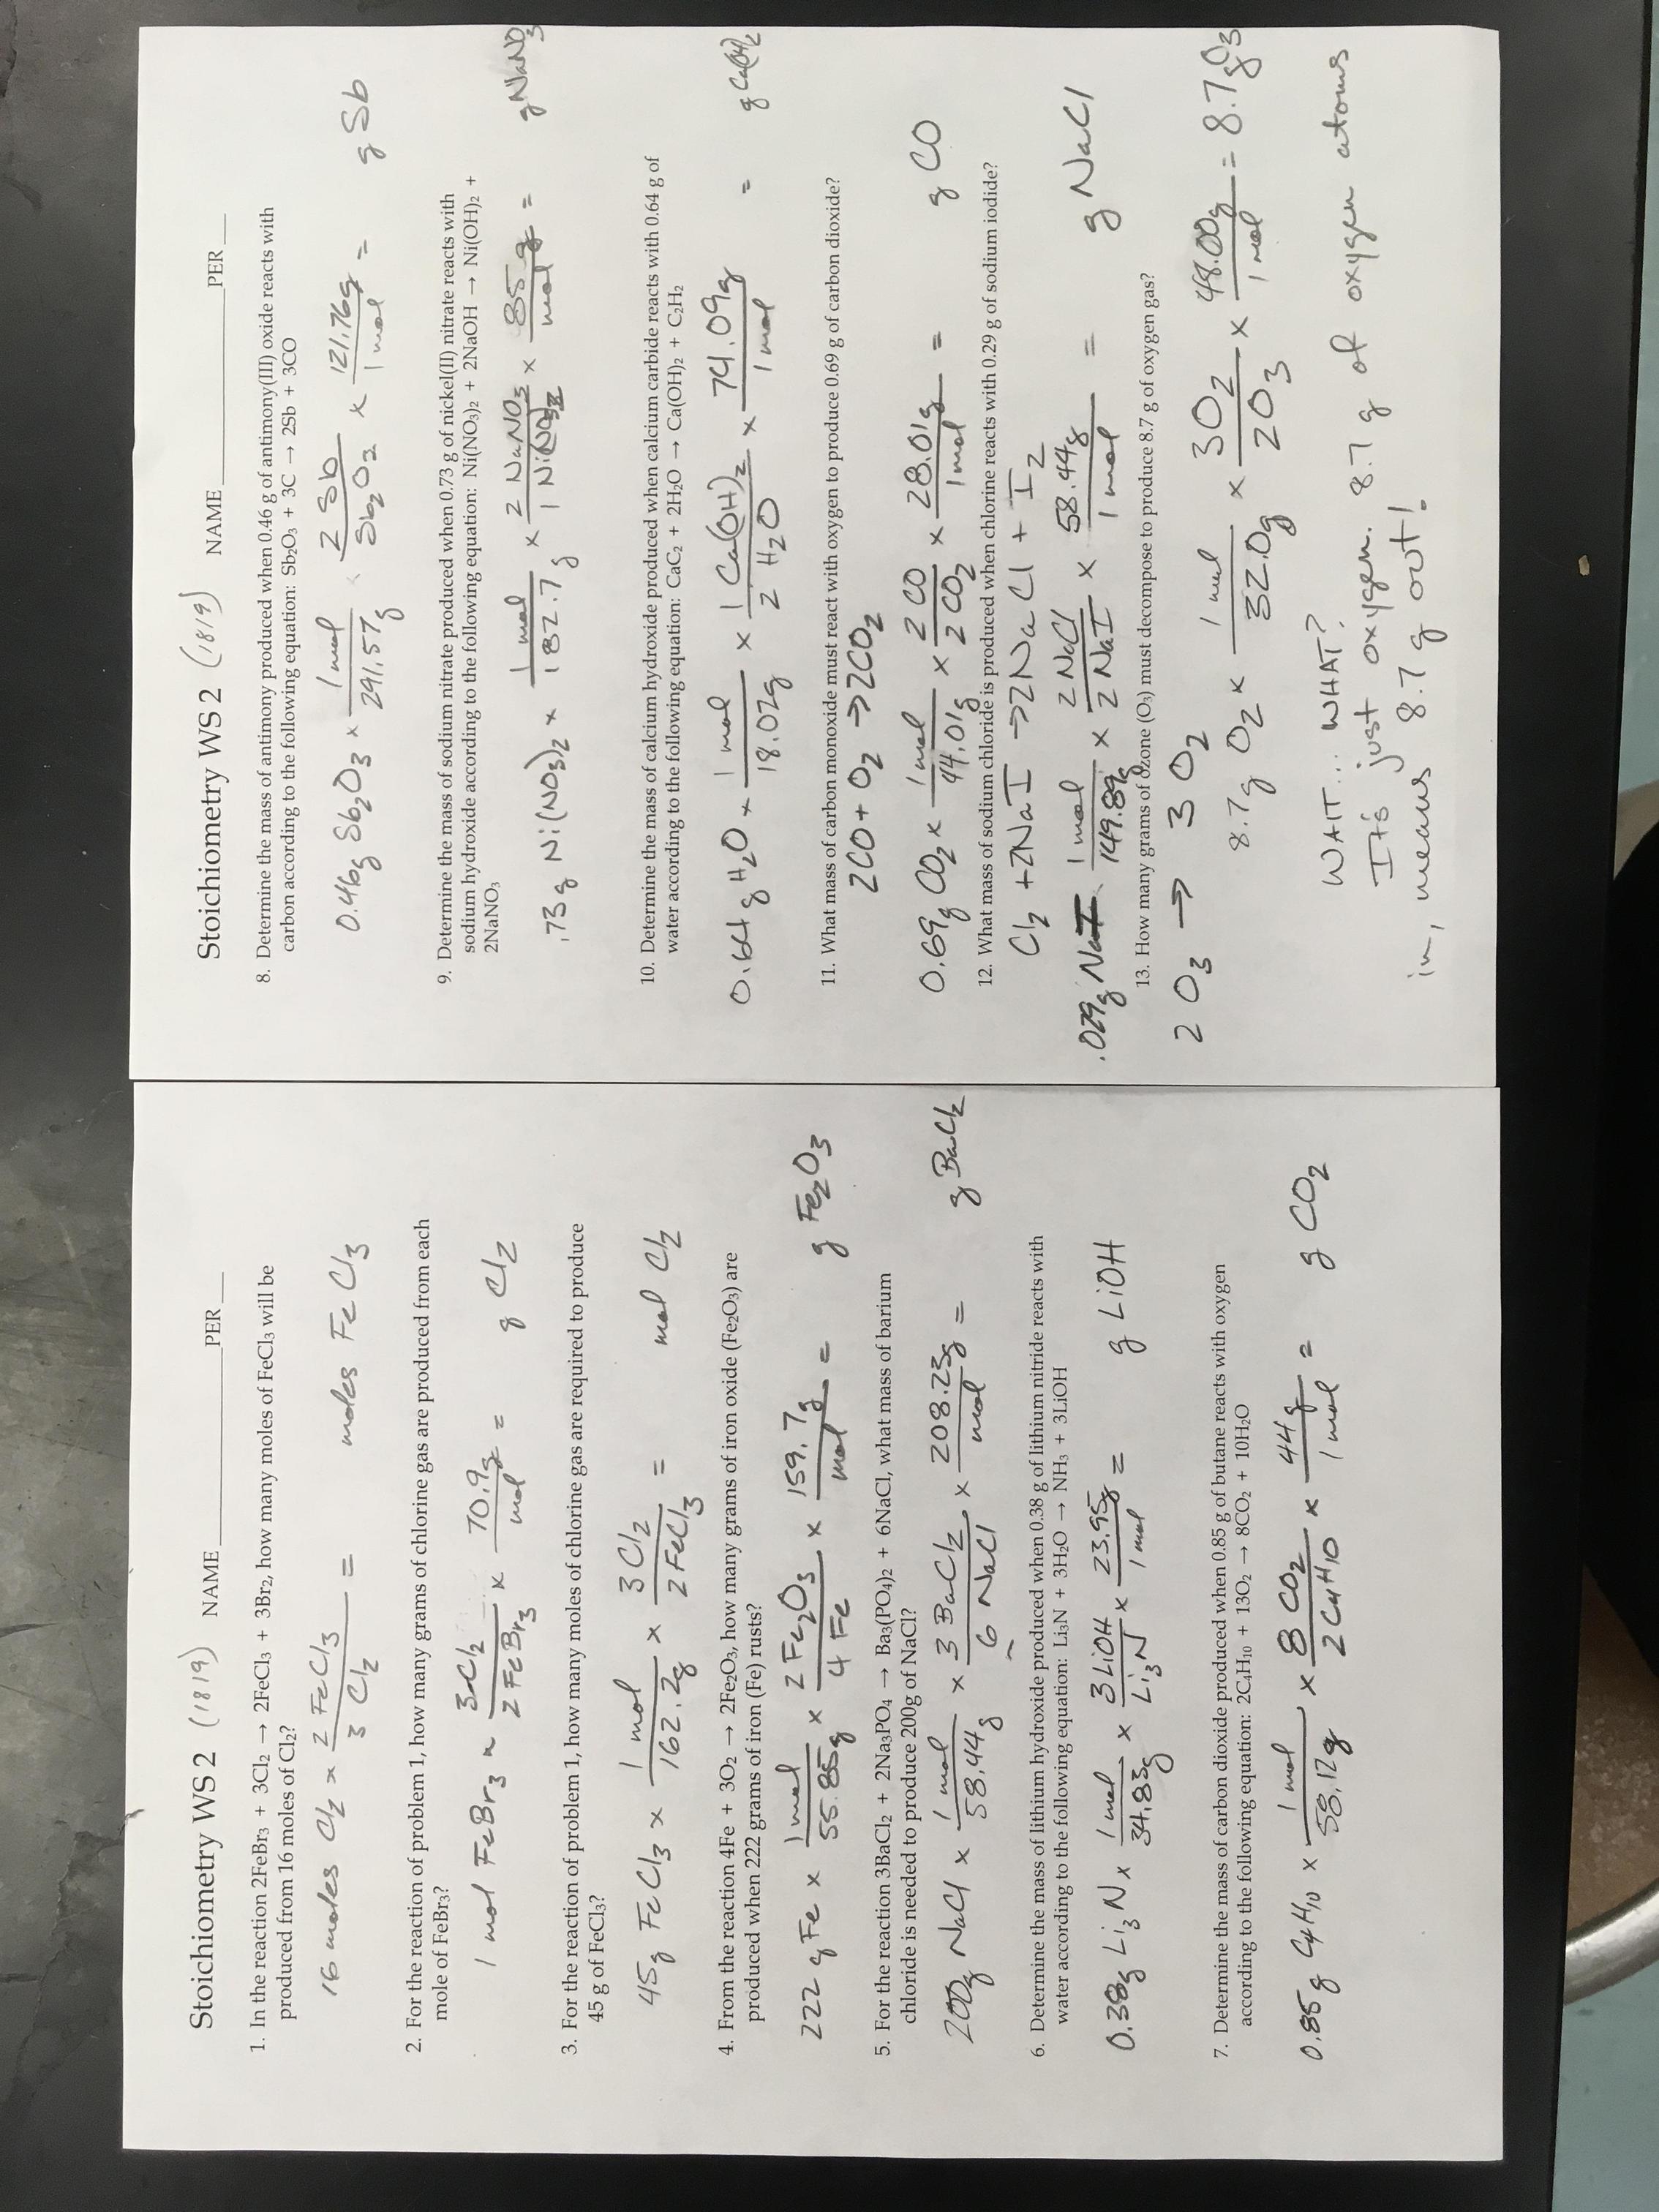 Stoichiometry WS 2 (1819) NAME ____________________PER ___
1. In the reaction 2FeBr3 + 3Cl2 → 2FeCl3 + 3Br2, how many moles of FeCl3 will be
produced from 16 moles of Cl2?
16 moles Cl2 x 2 FeCl3 / 3 Cl2 = moles FeCl3
2. For the reaction of problem 1, how many grams of chlorine gas are produced from each
mole of FeBr3?
1 mol FeBr3 x 3 Cl2 / 2 FeBr3 x 70.9g / mol = g Cl2
3. For the reaction of problem 1, how many moles of chlorine gas are required to produce
45 g of FeCl3?
45g FeCl3 x 1 mol / 162.2g x 3 Cl2 / 2 FeCl3 = mol Cl2
4. From the reaction 4Fe + 3O2 → 2Fe2O3, how many grams of iron oxide (Fe2O3) are
produced when 222 grams of iron (Fe) rusts?
222 g Fe x 1 mol / 55.85g x 2 Fe2O3 / 4 Fe x 159.7g / mol = g Fe2O3
5. For the reaction 3BaCl2 + 2Na3PO4 → Ba3(PO4)2 + 6NaCl, what mass of barium
chloride is needed to produce 200g of NaCl?
200g NaCl x 1 mol / 58.44g x 3 BaCl2 / 6 NaCl x 208.23g / mol = g BaCl2
6. Determine the mass of lithium hydroxide produced when 0.38 g of lithium nitride reacts with
water according to the following equation: Li3N + 3H2O → NH3 + 3LiOH
0.38g Li3N x 1 mol / 34.83g x 3 LiOH / Li3N x 23.95g / 1 mol = g LiOH
7. Determine the mass of carbon dioxide produced when 0.85 g of butane reacts with oxygen
according to the following equation: 2C4H10 + 13O2 → 8CO2 + 10H2O
0.85g C4H10 x 1 mol / 58.12g x 8 CO2 / 2 C4H10 x 44g / 1 mol = g CO2
Stoichiometry WS 2 (1819) NAME ____________________PER ___
8. Determine the mass of antimony produced when 0.46 g of antimony(III) oxide reacts with
carbon according to the following equation: Sb2O3 + 3C → 2Sb + 3CO
0.46g Sb2O3 x 1 mol / 291.57g x 2 Sb / Sb2O2 x 121.76g / 1 mol = g Sb
9. Determine the mass of sodium nitrate produced when 0.73 g of nickel(II) nitrate reacts with
sodium hydroxide according to the following equation: Ni(NO3)2 + 2NaOH → Ni(OH)2 +
2NaNO3
.73g Ni(NO3)2 x 1 mol / 182.7g x 2 NaNO3 / 1 Ni(NO3)2 x 85 g / mol = g NaNO3
10. Determine the mass of calcium hydroxide produced when calcium carbide reacts with 0.64 g of
water according to the following equation: CaC2 + 2H2O → Ca(OH)2 + C2H2
0.64g H2O x 1 mol / 18.02g x 1 Ca(OH)2 / 2 H2O x 74.09g / 1 mol = g Ca(OH)2
11. What mass of carbon monoxide must react with oxygen to produce 0.69 g of carbon dioxide?
2CO + O2 → 2CO2
0.69g CO2 x 1 mol / 44.01g x 2 CO / 2 CO2 x 28.01g / 1 mol = g CO
12. What mass of sodium chloride is produced when chlorine reacts with 0.29 g of sodium iodide?
Cl2 + 2NaI → 2NaCl + I2
.029g NaI x 1 mol / 149.89g x 2 NaCl / 2 NaI x 58.44g / 1 mol = g NaCl
13. How many grams of ozone (O3) must decompose to produce 8.7 g of oxygen gas?
2 O3 → 3 O2
8.7g O2 x 1 mol / 32.0g x 3O2 / 2O3 x 48.00g / 1 mol = 8.7g O3
WAIT... WHAT?
It's just oxygen. 8.7 g of oxygen atoms
in, means 8.7 g out!